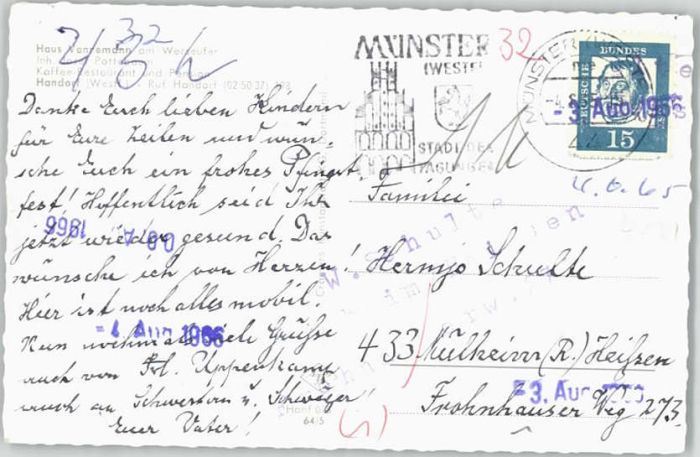 Haus Vennemann am Werseufer
Kaffee-Restaurant und
Handorf (Westf.) Ruf Handorf (02 50 37)
Danke Euch lieben Kindern
für Eure Zeilen und wün-
sche Euch ein frohes Pfingst-
fest! Hoffentlich seid Ihr
jetzt wieder gesund. Das
wünsche ich von Herzen!
Hier ist noch alles mobil.
Nun nochmals viele Grüße
auch von Frl. Uppenkamp
auch an Schwestern u. Schwäger!
Euer Vater!
MÜNSTER
(WESTF)
STADT DER
TAGUNGEN
32
32
MÜNSTER
DEUTSCHE
BUNDES
15
- 3. Aug. 1966
4.6.65
Familie
Hermjo Schulte
433 Mülheim (R.) Heißen
Frohnhauser Weg 273.
W. Schulte
1966
- 4. Aug. 1966
- 3. Aug.
64/5